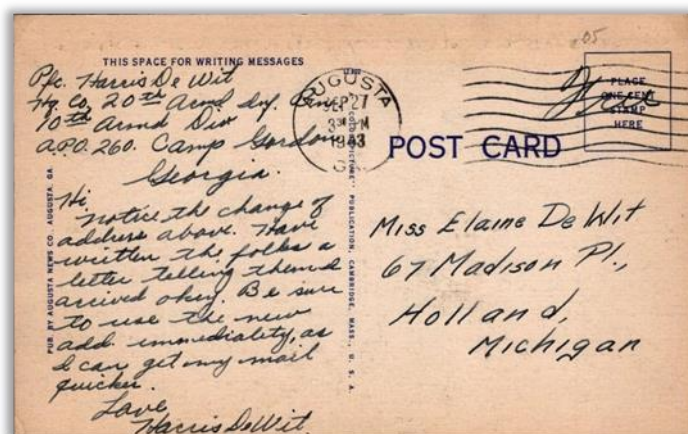 .05
THIS SPACE FOR WRITING MESSAGES
Pfc. Harris De Wit
Hq. Co, 20th Armd Inf.
10th Armd Div
A.P.O. 260. Camp Gordon
Georgia.
Hi
Notice the change of
address above. Have
written the folks a
letter telling them I
arrived okey. Be sure
to use the new
add. immediality, as
I can get my mail
quicker.
Love
Harris De Wit.
PUB. BY AUGUSTA NEWS CO., AUGUSTA, GA.
PUBLICATION, CAMBRIDGE, MASS., U. S. A.
AUGUSTA
SEP 27
3 PM
1943
GA.
Free
PLACE
ONE CENT
STAMP
HERE
POST CARD
Miss Elaine De Wit
67 Madison Pl.,
Holland,
Michigan